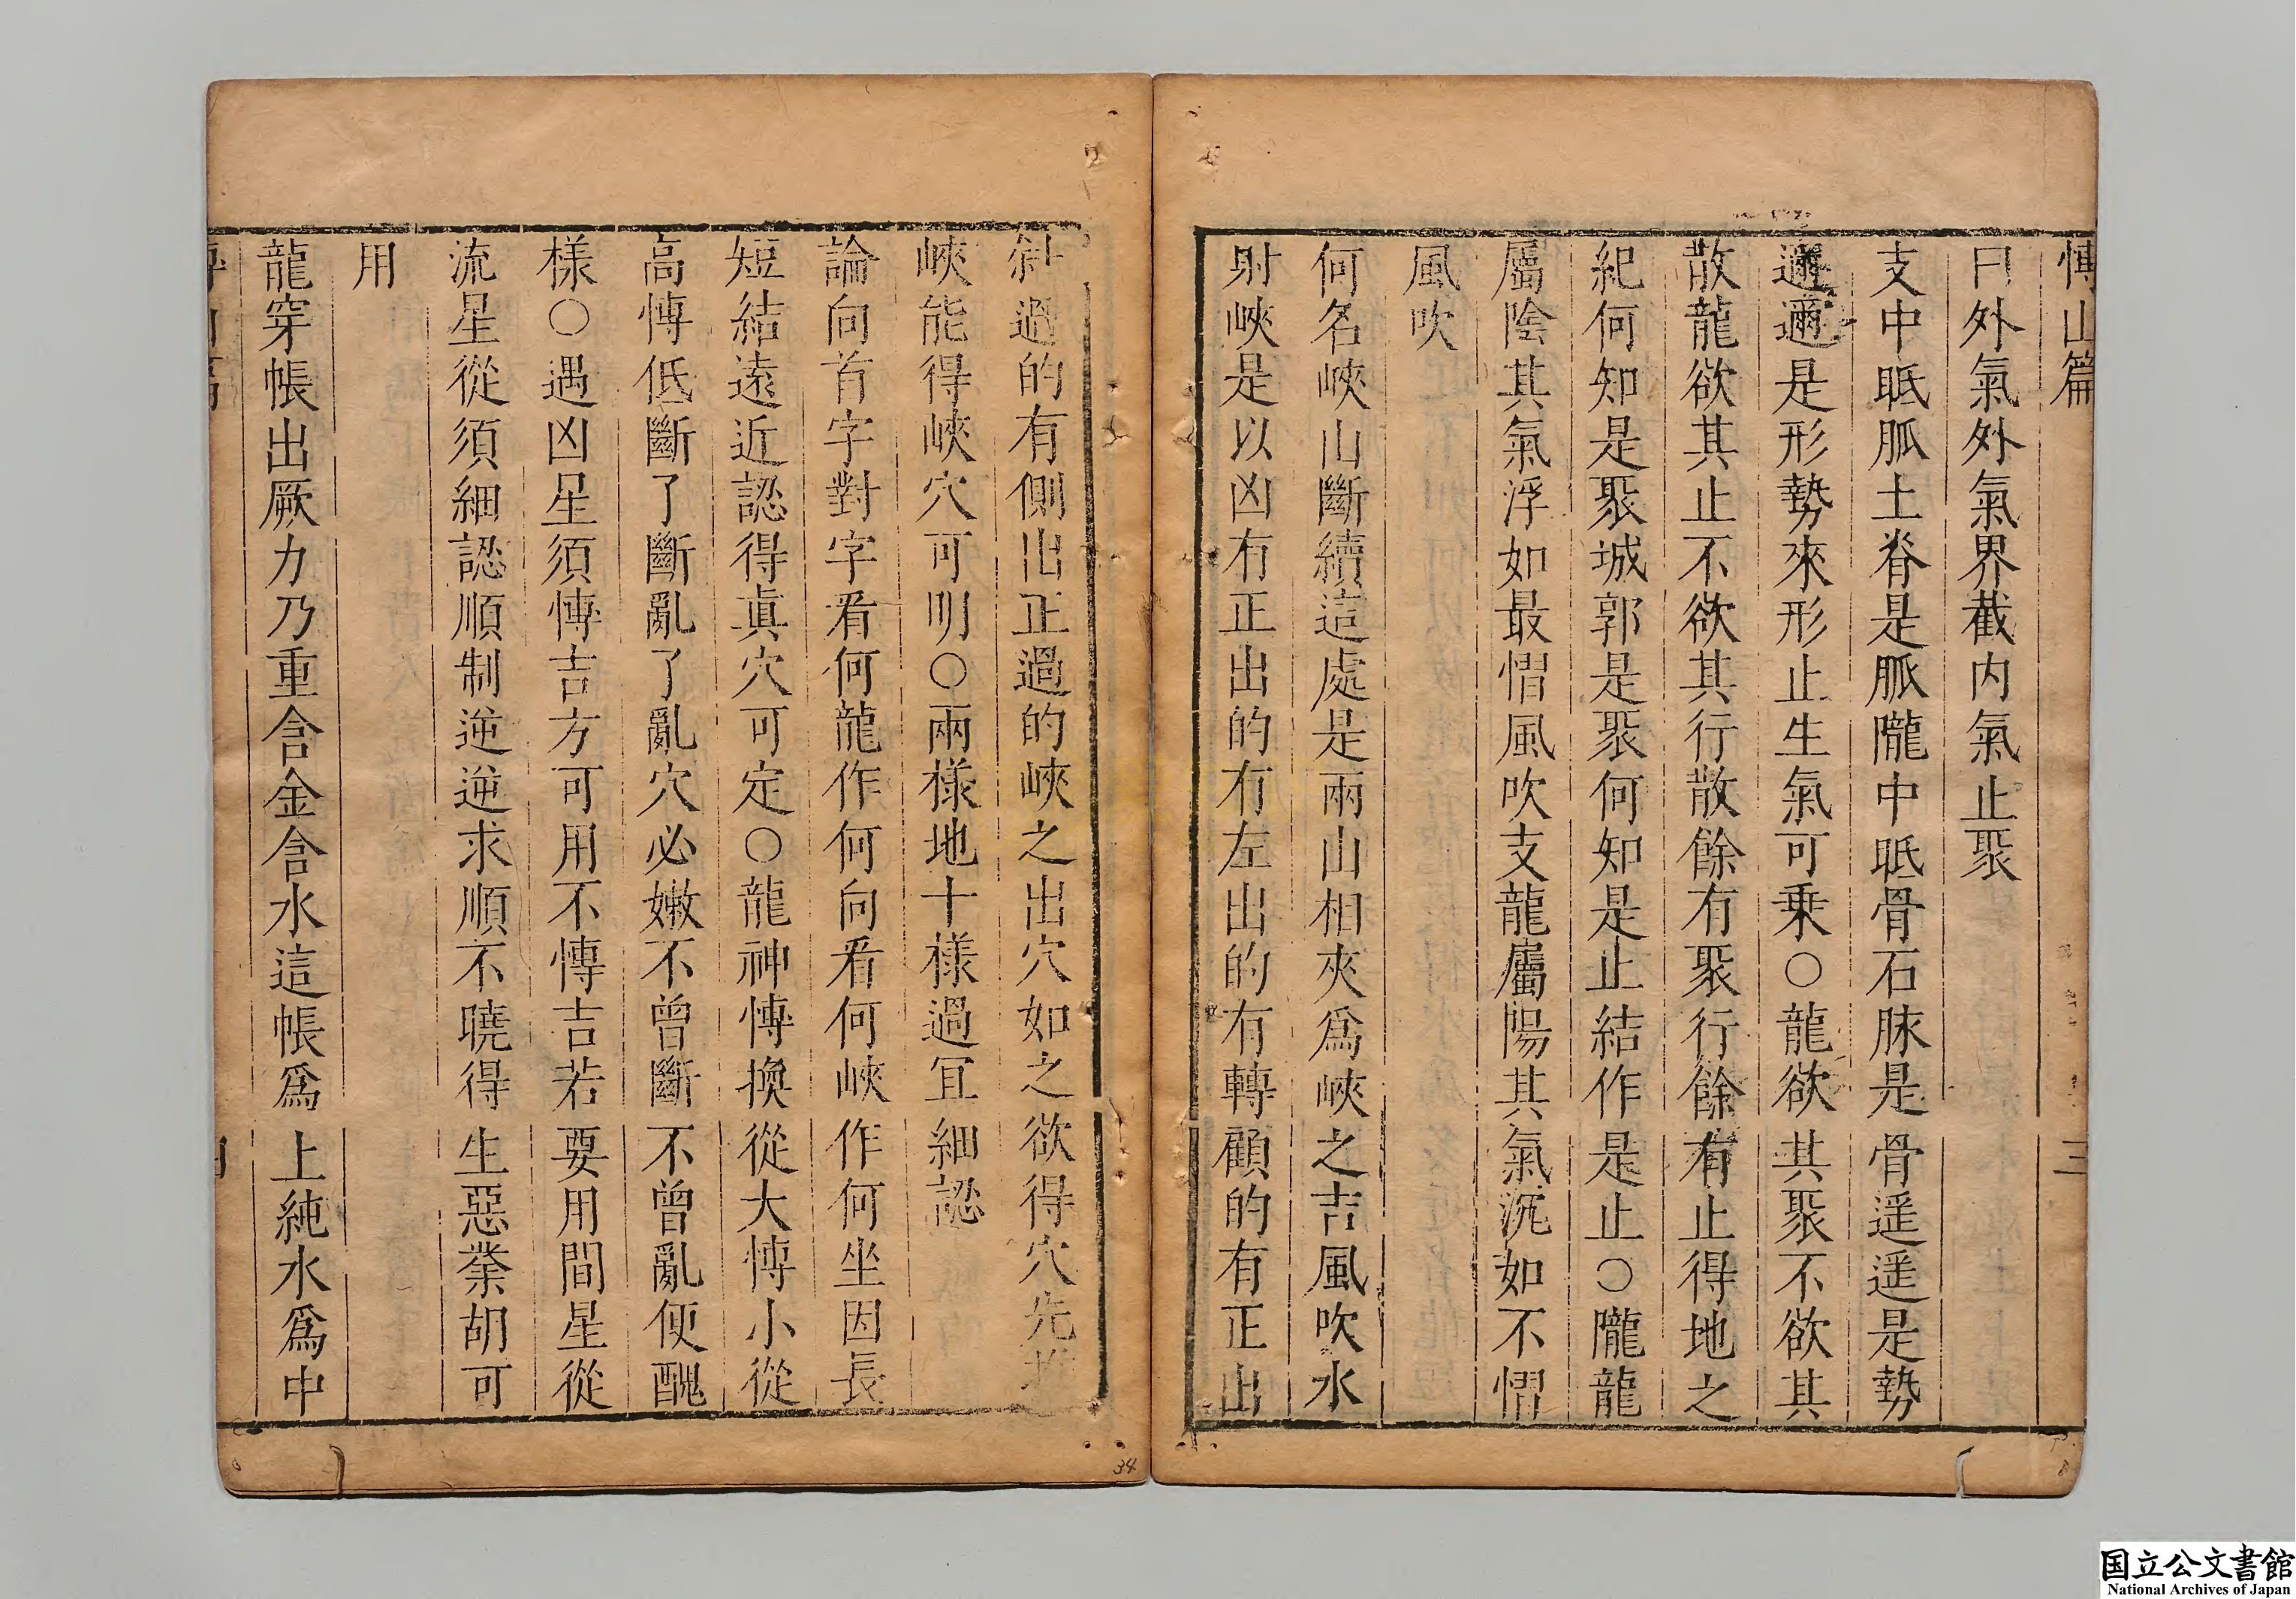 愽山篇 三
曰外氣外氣界截内氣止聚
支中眡胍土脊是脈隴中眡骨石脉是骨遥遥是勢
邇邇是形勢來形止生氣可乗○龍欲其聚不欲其
散龍欲其止不欲其行散餘有聚行餘有止得地之
紀何知是聚城郭是聚何知是止結作是止○隴龍
屬陰其氣浮如最慴風吹支龍屬陽其氣沉如不慴
風吹
何名峽山斷續這處是兩山相夾爲峽之吉風吹水
射峽是以凶有正出的有左出的有轉顧的有正出
斜過的有側出正過的峽之出穴如之欲得穴先
峽能得峽穴可明○兩樣地十樣過宜細認
論向首字對字看何龍作何向看何峽作何坐因長
短結遠近認得眞穴可定○龍神愽換從大愽小從
高愽低斷了斷亂了亂穴必嫩不曾斷不曾亂便醜
樣○遇凶星須愽吉方可用不愽吉若要用間星從
流星從須細認順制逆逆求順不曉得生惡業胡可
用
龍穿帳出厥力乃重含金含水這帳爲上純水爲中
国立公文書館
National Archives of Japan
34